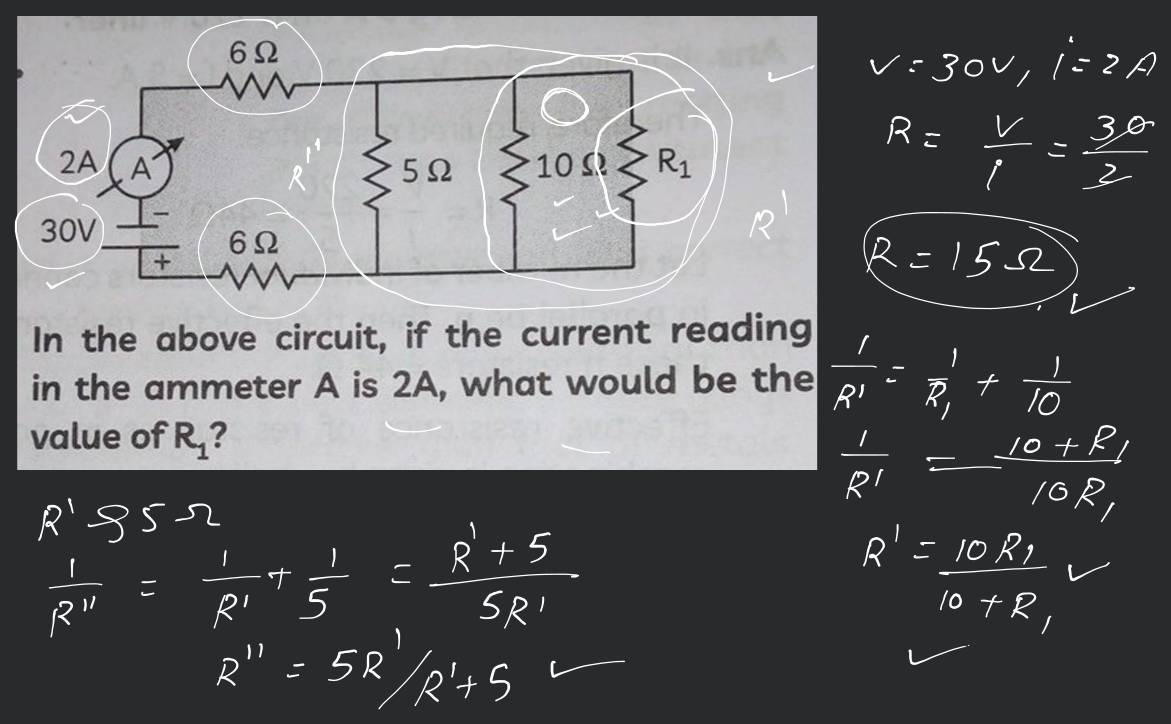 6Ω
2A
A
30V
-
+
6Ω
5Ω
10Ω
R₁
R''
R'
In the above circuit, if the current reading
in the ammeter A is 2A, what would be the
value of R₁?
V = 30V, i = 2A
R = V/i = 30/2
R = 15Ω
1/R' = 1/R₁ + 1/10
1/R' = 10 + R₁/10R₁
R' = 10R₁/10 + R₁
R' & 5Ω
1/R'' = 1/R' + 1/5 = R' + 5/5R'
R'' = 5R'/R'+5